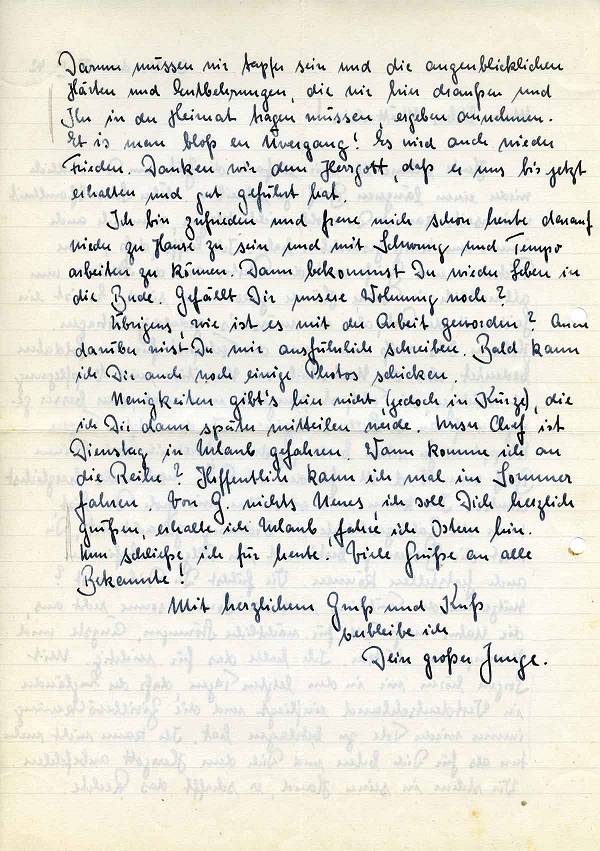 Darum müssen wir tapfer sein und die augenblicklichen
Härten und Entbehrungen, die wir hier draußen und
Ihr in der Heimat tragen müssen ergeben annehmen.
Et is man bloß en Üvergang! Es wird auch wieder
Frieden. Danken wir dem Herrgott, daß er uns bis jetzt
erhalten und gut geführt hat.
Ich bin zufrieden und freue mich schon heute darauf
wieder zu Hause zu sein und mit Schwung und Tempo
arbeiten zu können. Dann bekommst Du wieder Leben in
die Bude. Gefällt Dir unsere Wohnung noch?
Übrigens wie ist es mit der Arbeit geworden? Auch
darüber wirst Du mir ausführlich schreiben. Bald kann
ich Dir auch noch einige Photos schicken.
Neuigkeiten gibt's hier nicht, (jedoch in Kürze), die
ich Dir dann später mitteilen werde. Unser Chef ist
Dienstag in Urlaub gefahren. Wann komme ich an
die Reihe? Hoffentlich kann ich mal im Sommer
fahren. Von G. nichts Neues, ich soll Dich herzlich
grüßen, erhalte ich Urlaub, fahre ich Ostern hin.
Nun schließe ich für heute. Viele Grüße an alle
Bekannte!
Mit herzlichem Gruß und Kuß
verbleibe ich
Dein großer Junge.